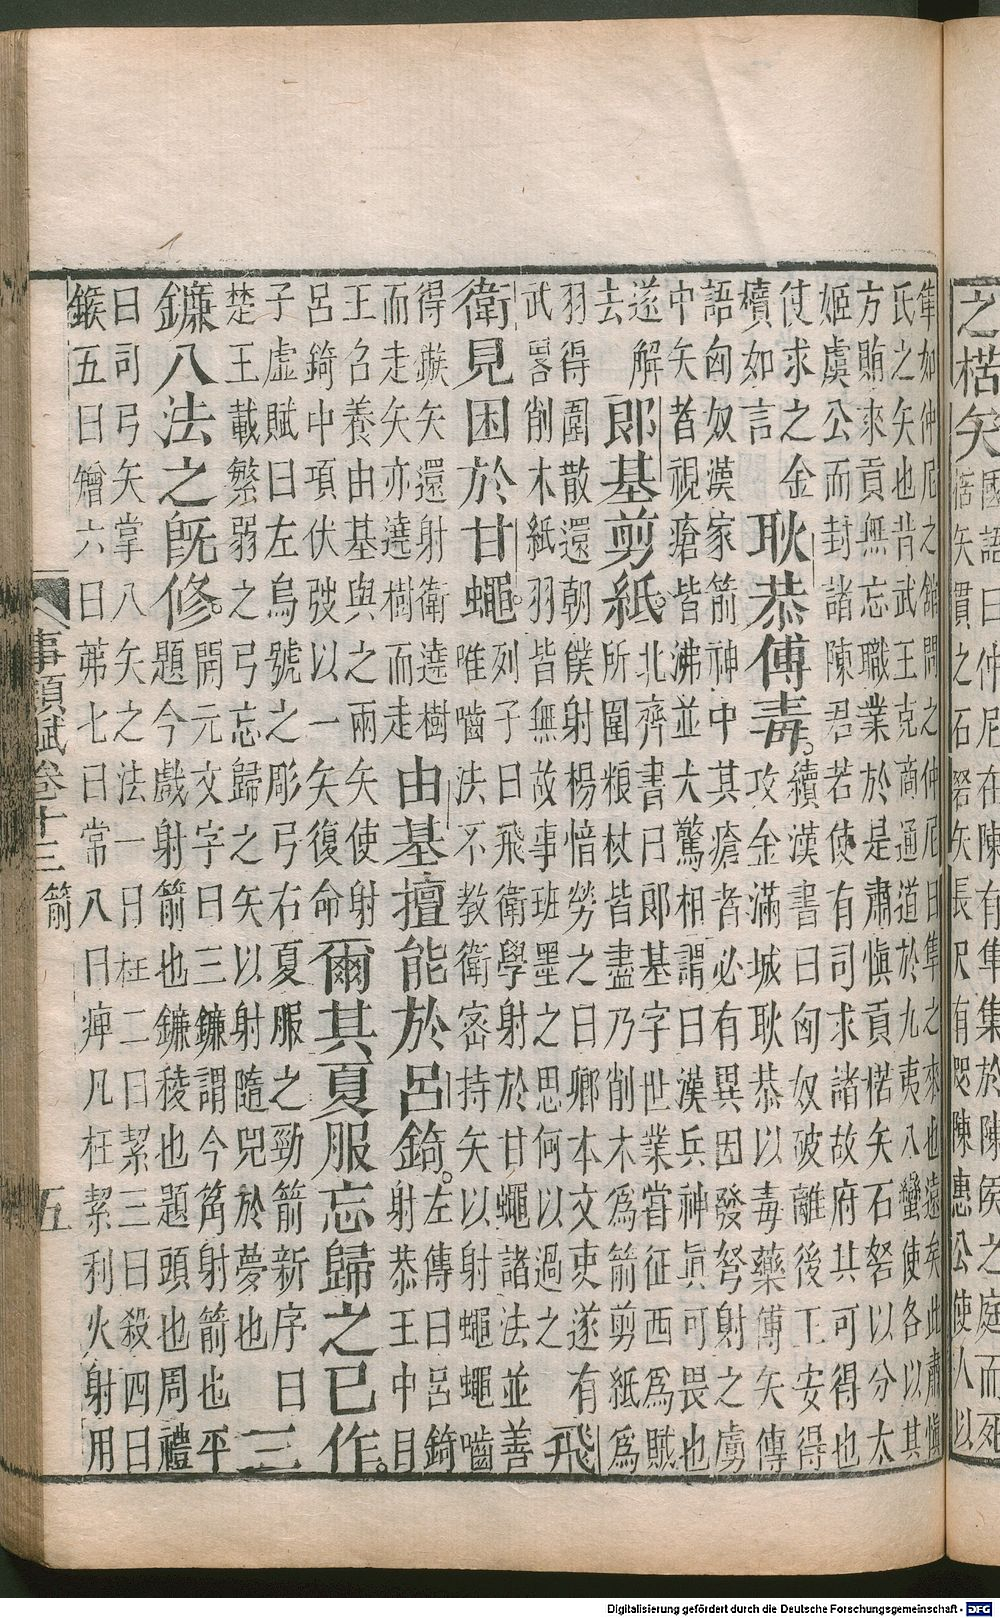 之楛矢
國語曰仲尼在陳有隼集於陳侯之庭而死
楛矢貫之石砮矢長尺有咫陳惠公使人以
隼如仲尼之館問之仲尼曰隼之來也遠矣此肅慎
氏之矢也昔武王克商通道於九夷八蠻使各以其
方賄來貢無忘職業於是肅慎貢楛矢石砮以分太
姬虞公而封諸陳君若使有司求諸故府其可得也
使求之金
櫝如言
耿恭傅毒。
續漢書曰匈奴破離後王安得
攻金滿城耿恭以毒藥傅矢傳
語匈奴漢家箭神中其瘡者必有異因發弩射之虜
中矢者視瘡皆沸並大驚相謂曰漢兵神眞可畏也
遂解
去
郎基剪紙。
北齊書曰郎基字世業嘗征西爲賊
所圍粮杖皆盡乃削木爲箭剪紙爲
羽得圍散還朝僕射楊愔勞之曰卿本文吏遂有
武畧削木紙羽皆無故事班墨之思何以過之
飛
衛見困於甘蠅。
列子曰飛衛學射於甘蠅諸法並善
唯嚙法不教衛密持矢以射蠅蠅嚙
得鏃矢還射衛遶樹
而走矢亦遶樹而走
由基擅能於呂錡。
左傳曰呂錡
射恭王中目
王召養由基與之兩矢使射
呂錡中項伏弢以一矢復命
爾其夏服忘歸之已作。
子虛賦曰左烏號之彫弓右夏服之勁箭新序曰
楚王載繁弱之弓忘歸之矢以射隨兕於夢也
三
鐮八法之旣修。
開元文字曰三鐮謂今筩射箭也平
題今戲射箭也鐮稜也題頭也周禮
曰司弓矢掌八矢之法一曰枉二曰絜三曰殺四曰
鍭五曰矰六曰茀七曰常八曰痺凡枉絜利火射用
事類賦卷十三 箭 五
Digitalisierung gefördert durch die Deutsche Forschungsgemeinschaft - DFG